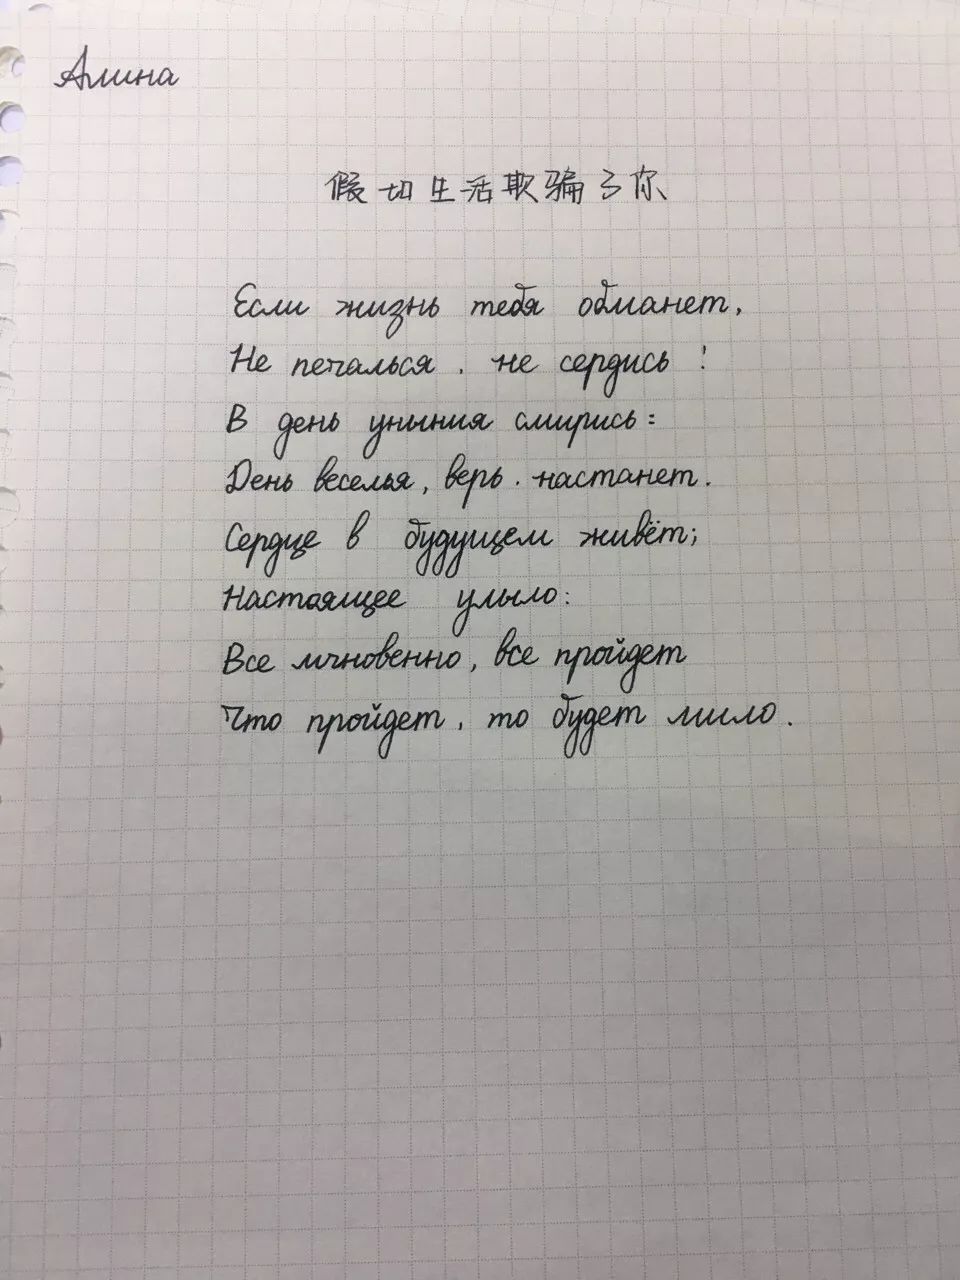 Алина
假如生活欺骗了你
Если жизнь тебя обманет,
Не печалься, не сердись!
В день уныния смирись:
День веселья, верь, настанет.
Сердце в будущем живёт;
Настоящее уныло:
Все мгновенно, все пройдет
Что пройдет, то будет мило.